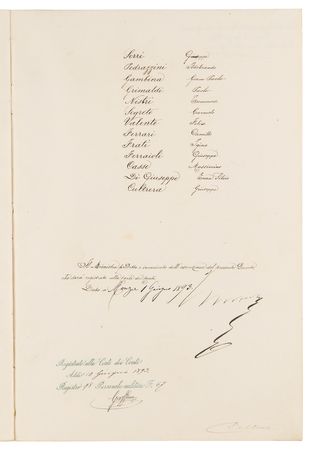 Serri Giuseppe
Pedrazzini Ildebrando
Gambina Gian Paolo
Grimaldi Paolo
Nestri
Segreto Carmelo
Valente Felice
Ferrari Camillo
Frati Igino
Ferraiolo Giuseppe
Cassé Massimino
De Giuseppe
Cultrera Giuseppe
Il Ministro predetto è incaricato dell'esecuzione del presente Decreto
che sarà registrato alla Corte dei conti.
Dato a Monza 1 Giugno 1893
Registrato alla Corte dei Conti
Addì 10 Giugno 1893
Registro 98 Personale militare F. 67